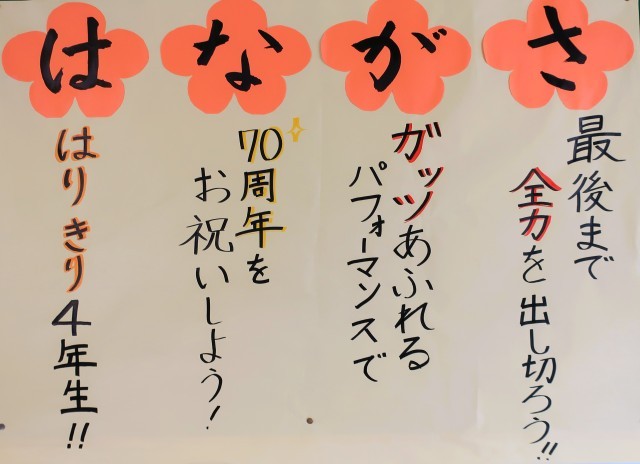 はながさ
はりきり4年生!!
70周年を
お祝いしよう!
ガッツあふれる
パフォーマンスで
最後まで
全力を出し切ろう!!